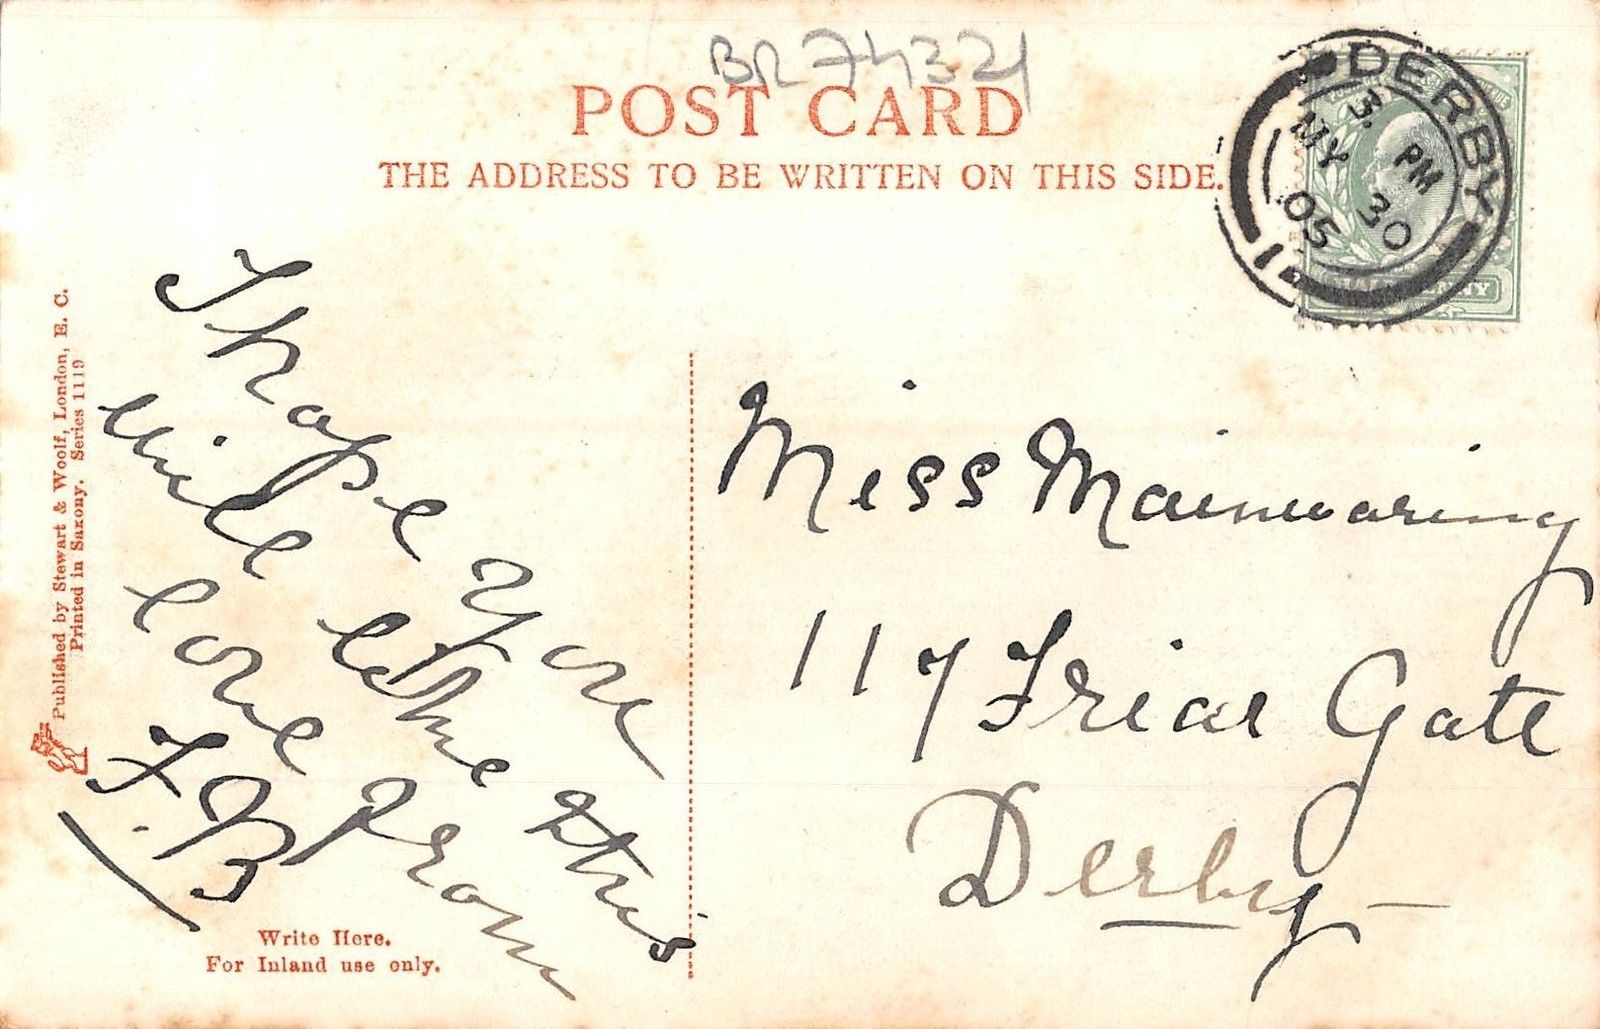 BR 74321
POST CARD
THE ADDRESS TO BE WRITTEN ON THIS SIDE.
DERBY
3. PM
MY 30
05
HALFPENNY
Published by Stewart & Woolf, London, E. C.
Printed in Saxony. Series 1119
I hope you
will like this
love from
F.B
Miss Mainwaring
117 Friar Gate
Derby
Write Here.
For Inland use only.